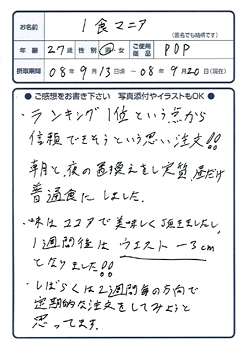 お名前
1食マニア
(匿名でも結構です)
年齢 27歳 性別 男・女 ご使用商品 PDP
摂取期間 08年9月13日頃 ～ 08年9月20日(現在)
● ご感想をお書き下さい 写真添付やイラストもOK ●
・ランキング1位という点から
信頼できそうという思い注文!!
朝と夜の置換えをし実質、昼だけ
普通食にしました。
・味はココアで美味しく頂きましたし、
1週間後は ウエスト -3cm
となりました!!
・しばらくは2週間毎の方向で
定期的な注文をしてみようと
思ってます。